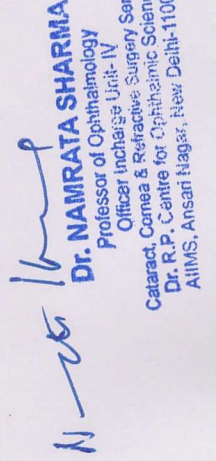 Dr. NAMRATA SHARMA
Professor of Ophthalmology
Officer Incharge Unit- IV
Cataract, Cornea & Refractive Surgery Ser
Dr. R.P. Centre for Ophthalmic Scienc
AIIMS, Ansari Nagar, New Delhi-1100